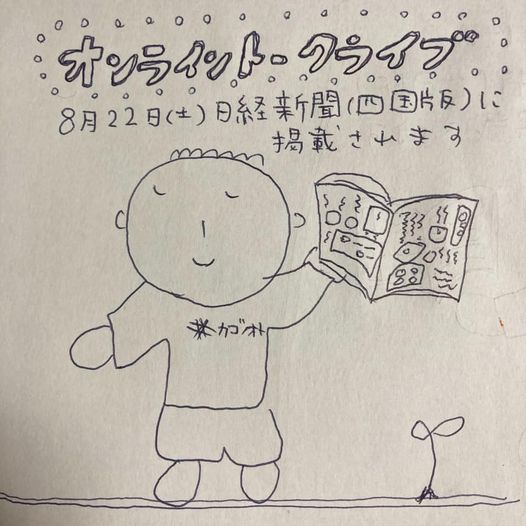 オンライントークライブ
8月22日(土)日経新聞(四国版)に
掲載されます
カゴオト